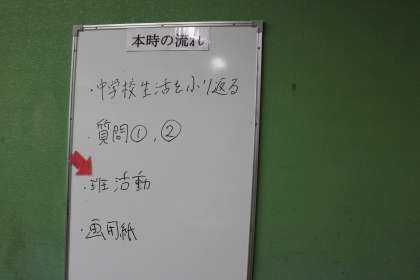 本時の流れ
・中学校生活をふり返る
・質問①、②
・班活動
・画用紙